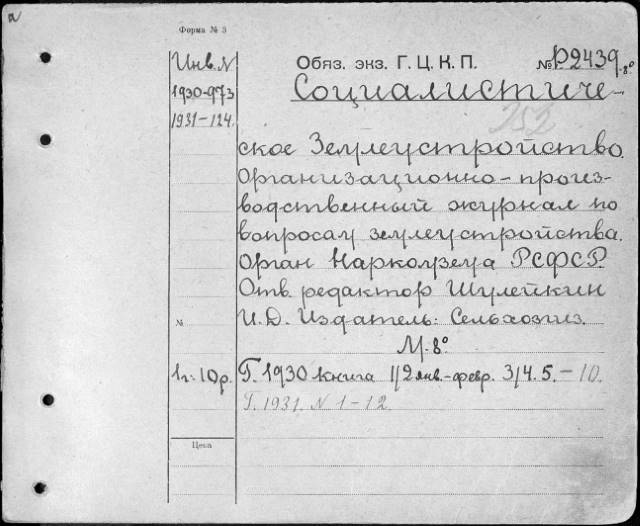 а
Форма № 3
Инв. N
Обяз. экз. Г. Ц. К. П. № Р2439.8°
1930-973
Социалистиче-
1931-124.
252
ское Землеустройство.
Организационно-произ-
водственный журнал по
вопросам землеустройства.
Орган Наркомзема РСФСР.
Отв. редактор Шулейкин
№
И.Д. Издатель: Сельхозгиз.
М. 8°
1 г: 10 р.
Г. 1930 книга 1/2 янв.-февр. 3/4. 5. - 10.
Г. 1931. N 1-12.
Цена